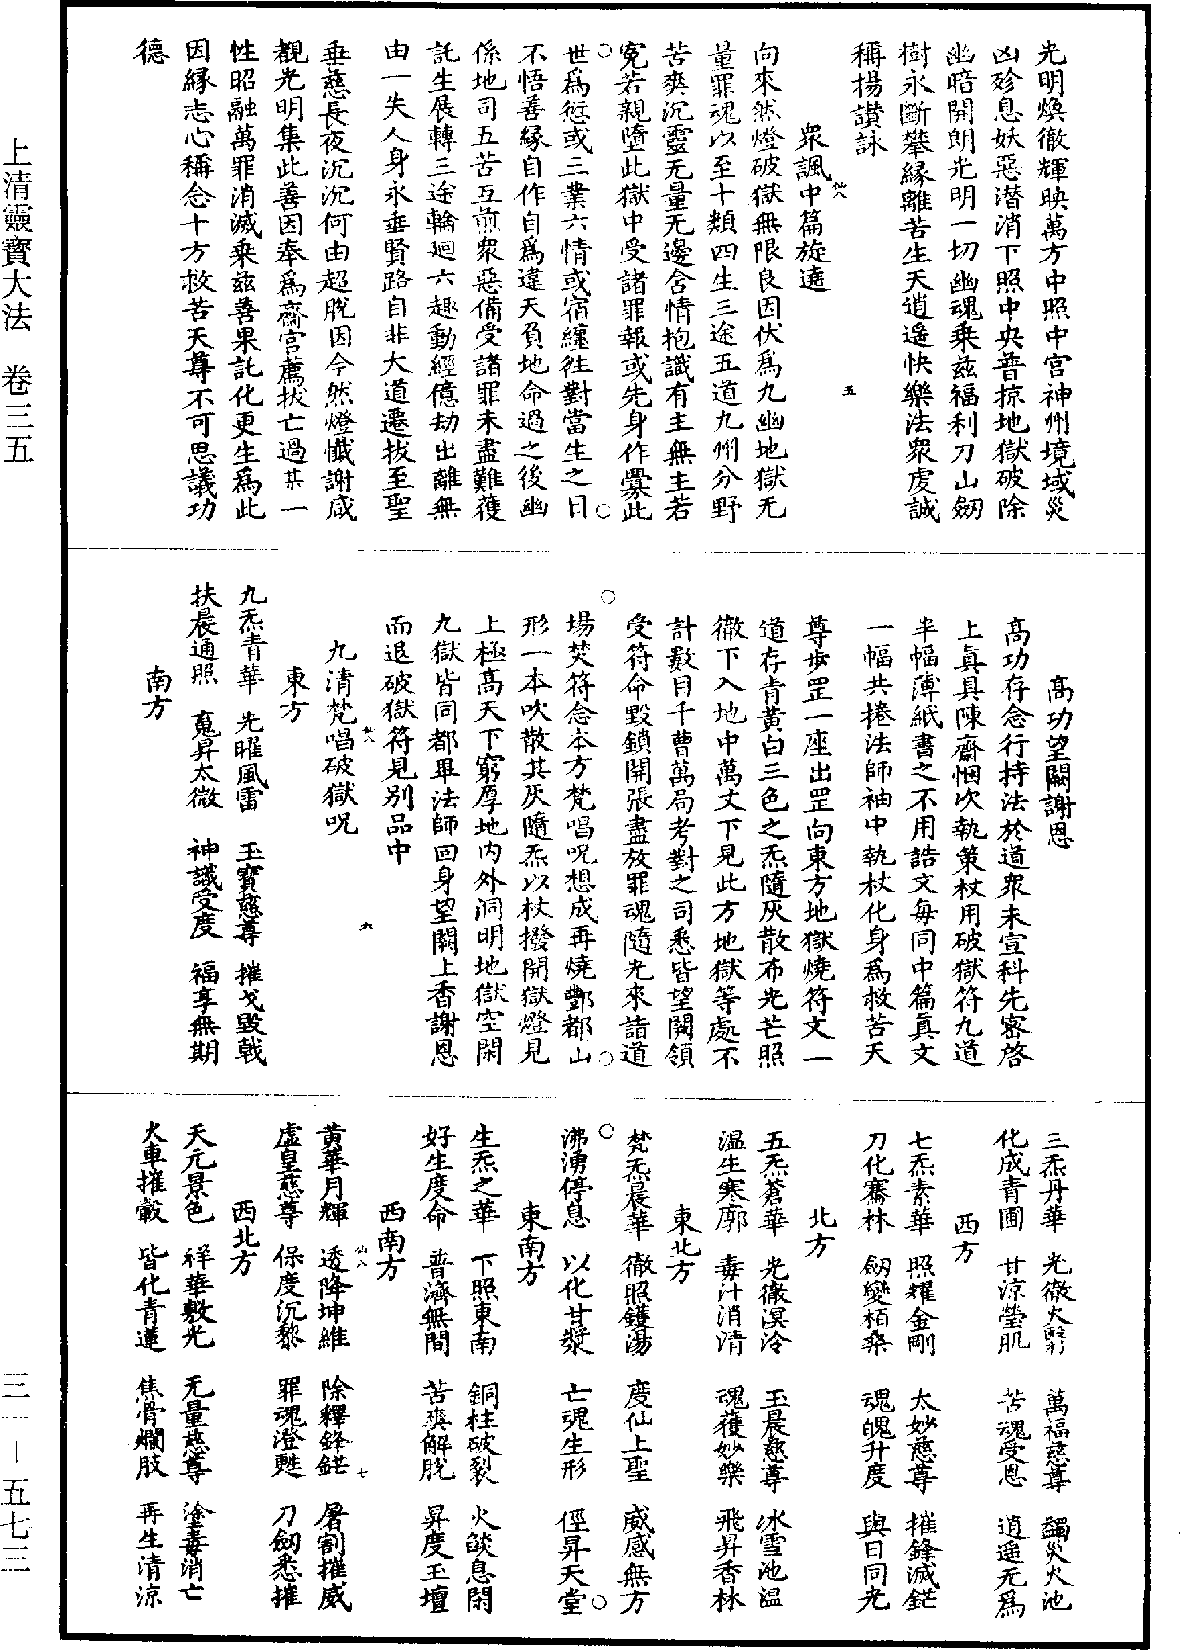 光明煥徹輝映萬方中照中宮神州境域災
凶殄息妖惡潛消下照中央普掠地獄破除
幽暗開朗光明一切幽魂乘茲福利刀山劒
樹永斷攀緣離苦生天逍遙快樂法眾虔誠
稱揚讚詠
眾諷中篇旋遶
向來然燈破獄無限良因伏為九幽地獄无
量罪魂以至十類四生三途五道九州分野
苦爽沉靈无量无邊含情抱識有主無主若
冤若親墮此獄中受諸罪報或先身作釁此
世為愆或三業六情或宿纏往對當生之日
不悟善緣自作自為違天負地命過之後幽
係地司五苦互煎眾惡備受諸罪未盡難獲
託生展轉三途輪迴六趣動經億劫出離無
由一失人身永垂賢路自非大道遷拔至聖
垂慈長夜沉沉何由超脫因今然燈懺謝咸
覩光明集此善因奉為齋官薦拔亡過某一
性昭融萬罪消滅乘茲善果託化更生為此
因緣志心稱念十方救苦天尊不可思議功
德
高功望闕謝恩
高功存念行持法於道眾未宣科先密啓
上真具陳齋悃次執策杖用破獄符九道
半幅薄紙書之不用誥文每同中篇真文
一幅共捲法師袖中執杖化身為救苦天
尊步罡一座出罡向東方地獄燒符文一
道存青黃白三色之炁隨灰散布光芒照
徹下入地中萬丈下見此方地獄等處不
計數目千曹萬局考對之司悉皆望闕領
受符命毀鎖開張盡放罪魂隨光來詣道
場焚符念本方梵唱呪想成再燒酆都山
形一本吹散其灰隨炁以杖撥開獄燈見
上極高天下窮厚地內外洞明地獄空閑
九獄皆同都畢法師回身望闕上香謝恩
而退破獄符見別品中
九清梵唱破獄呪
東方
九炁青華　光曜風雷　玉寶慈尊　摧戈毀戟
扶晨通照　嵬昇太微　神識受度　福享無期
南方
三炁丹華　光徹火㷀　萬福慈尊　蠲災火池
化成青圃　甘涼瑩肌　苦魂受恩　逍遙无為
西方
七炁素華　照耀金剛　太妙慈尊　摧鋒滅鋩
刀化騫林　劒變栢桑　魂魄升度　與日同光
北方
五炁蒼華　光徹溟泠　玉晨慈尊　冰雪池溫
溫生寒廓　毒汁消清　魂獲妙樂　飛昇香林
東北方
梵炁晨華　徹照鑊湯　度仙上聖　威感無方
沸湧停息　以化甘漿　亡魂生形　徑昇天堂
東南方
生炁之華　下照東南　銅柱破裂　火燄息閑
好生度命　普濟無間　苦爽解脫　昇度玉壇
西南方
黃華月輝　透降坤維　除釋鋒鋩　屠割摧威
虛皇慈尊　保度沉黎　罪魂澄甦　刀劒悉摧
西北方
天元景色　祥華敷光　无量慈尊　塗毒消亡
火車摧轂　皆化青蓮　焦骨爛肢　再生清涼
上清靈寶大法　卷三五
三一－五七三